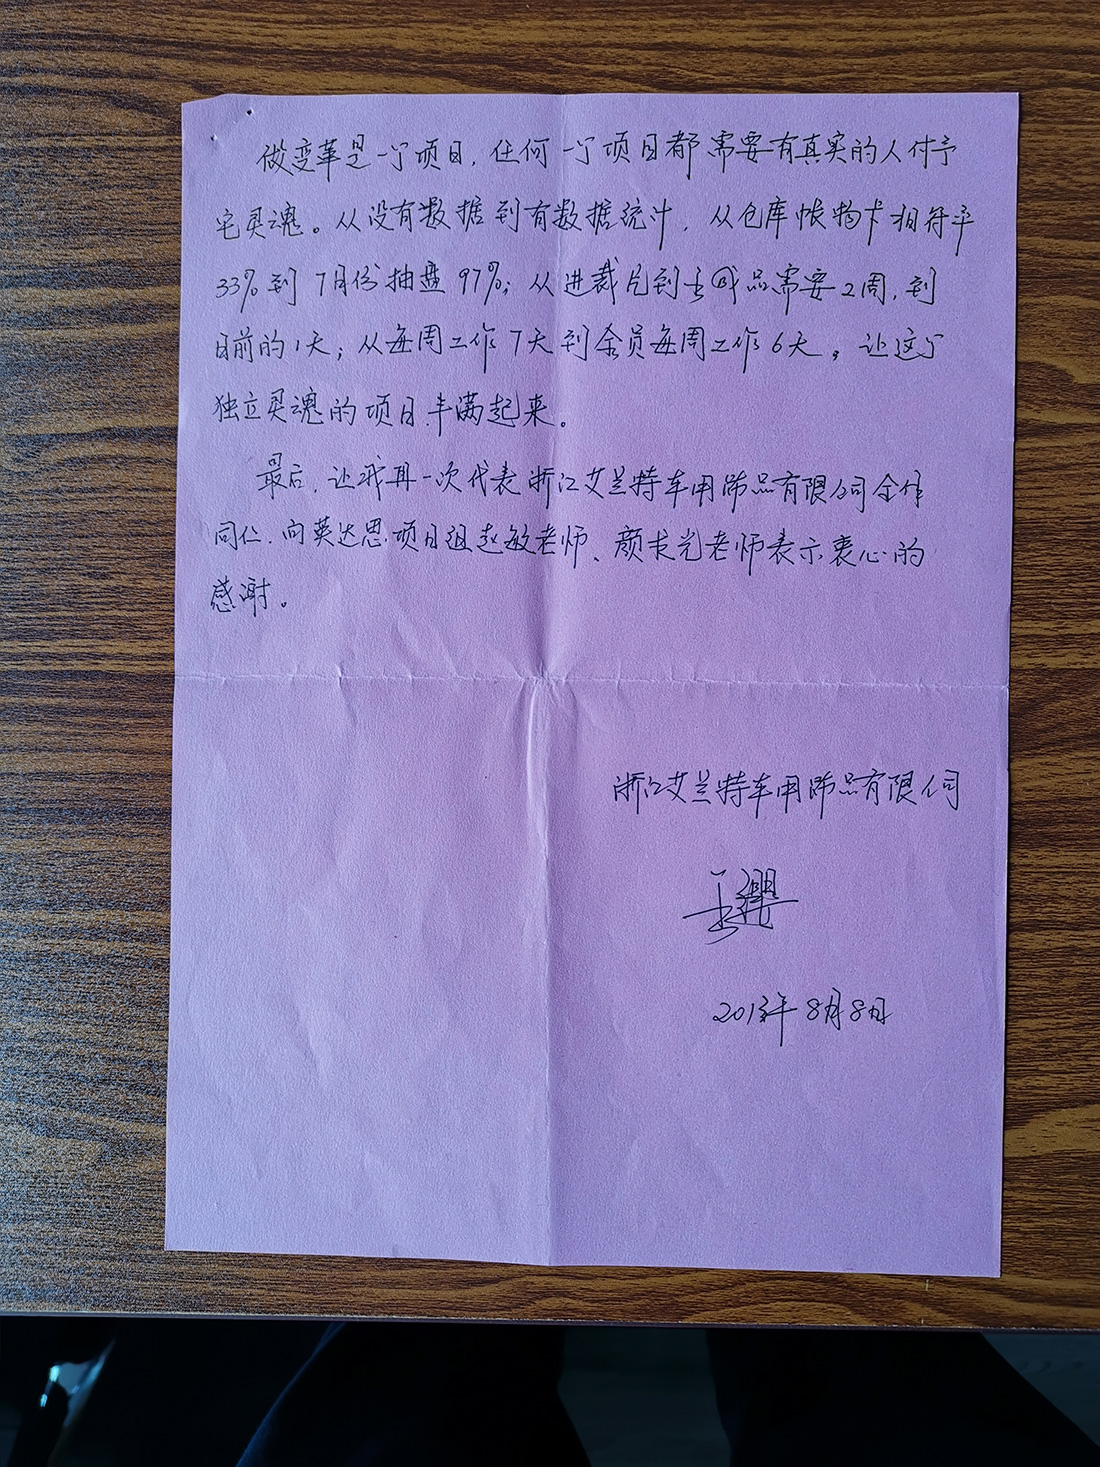 做变革是一个项目，任何一个项目都需要有真实的人付予
它灵魂。从没有数据到有数据统计，从仓库帐物卡相符率
33%到7月份抽盘97%；从进裁片到出成品需要2周，到
目前的1天；从每周工作7天到全员每周工作6天，让这个
独立灵魂的项目丰满起来。
最后，让我再一次代表浙江艾兰特车用饰品有限公司全体
同仁，向英达思项目组赵敏老师、颜求光老师表示衷心的
感谢。
浙江艾兰特车用饰品有限公司
2013年8月8日